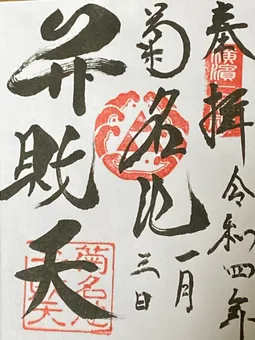 奉拝
令和四年
一月
三日
菊名池
弁財天
横濱
菊名池
弁天